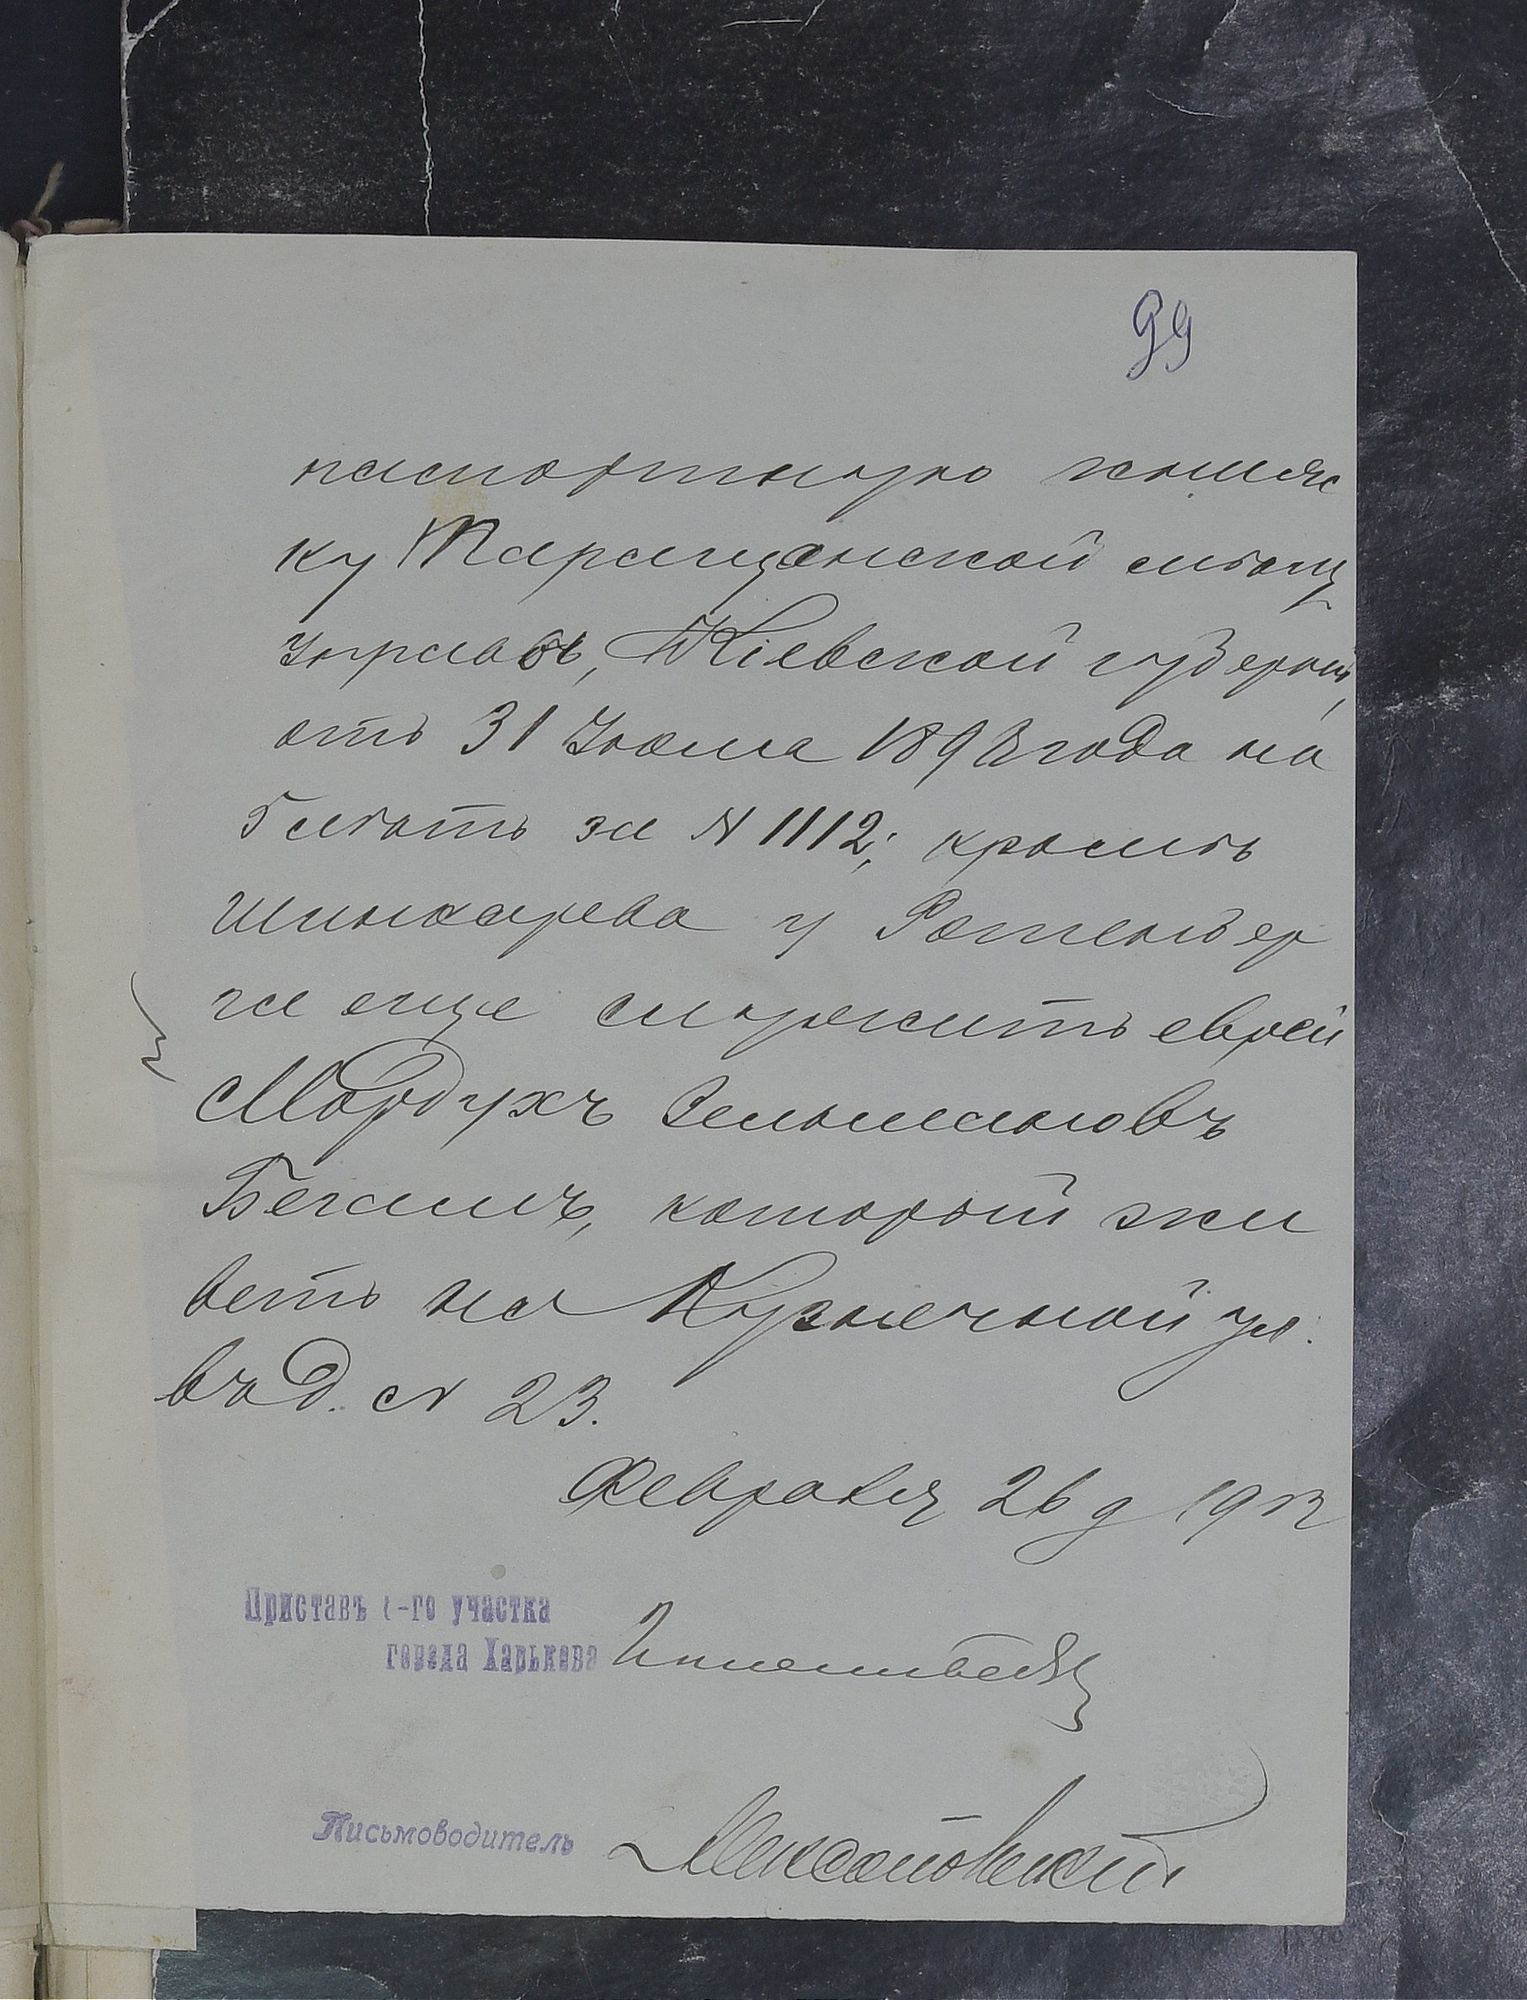 99
паспортную книж
ку Таращанской мѣщ
управы, Кіевской губерніи,
отъ 31 Іюля 189 года на
5 лѣтъ за № 1112; кромѣ
Шинкарева у Ротенбер
га еще служитъ еврей
Мордухъ Зельмановъ
Бегамъ, который жи
ветъ на Кузнечной ул.
въ д. № 23.
Февраля 26 д 190
Приставъ 1-го участка
города Харькова
Письмоводитель